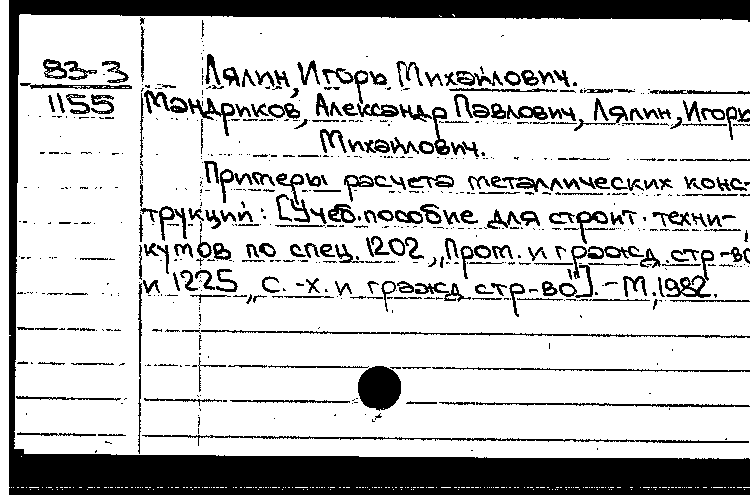 83-3 Лялин, Игорь Михайлович.
1155 Мандриков, Александр Павлович, Лялин, Игорь
Михайлович.
Примеры расчета металлических конс-
трукций: [Учеб. пособие для строит. техни-
кумов по спец. 1202 „Пром. и гражд. стр-во
и 1225 „С.-х. и гражд стр-во"]. - М, 1982.